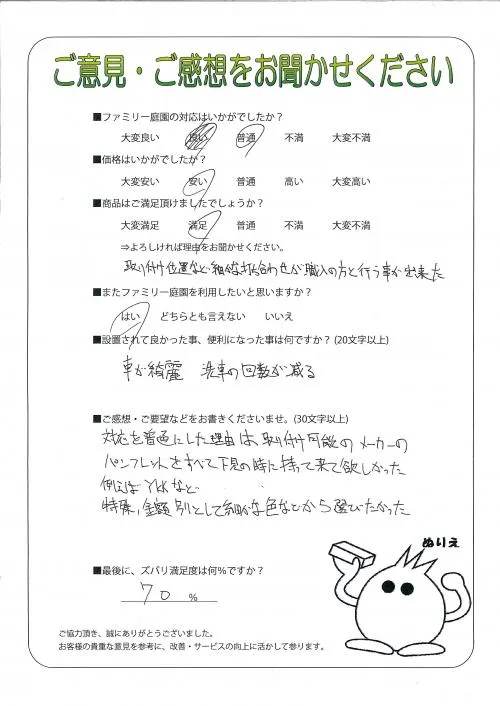 ご意見・ご感想をお聞かせください
■ファミリー庭園の対応はいかがでしたか？
大変良い 良い 普通 不満 大変不満
■価格はいかがでしたか？
大変安い 安い 普通 高い 大変高い
■商品はご満足頂けましたでしょうか？
大変満足 満足 普通 不満 大変不満
⇒よろしければ理由をお聞かせください。
取り付け位置など細かな打ち合わせが職人の方と行う事が出来た
■またファミリー庭園を利用したいと思いますか？
はい どちらとも言えない いいえ
■設置されて良かった事、便利になった事は何ですか？(20文字以上)
車が綺麗 洗車の回数が減る
■ご感想・ご要望などをお書きくださいませ。(30文字以上)
対応を普通にした理由は、取り付け可能のメーカーの
パンフレットをすべて下見の時に持って来て欲しかった
例えばYKKなど
特殊,金額別として細かな色などから選びたかった
ぬりえ
■最後に、ズバリ満足度は何％ですか？
70 %
ご協力頂き、誠にありがとうございました。
お客様の貴重な意見を参考に、改善・サービスの向上に活かして参ります。